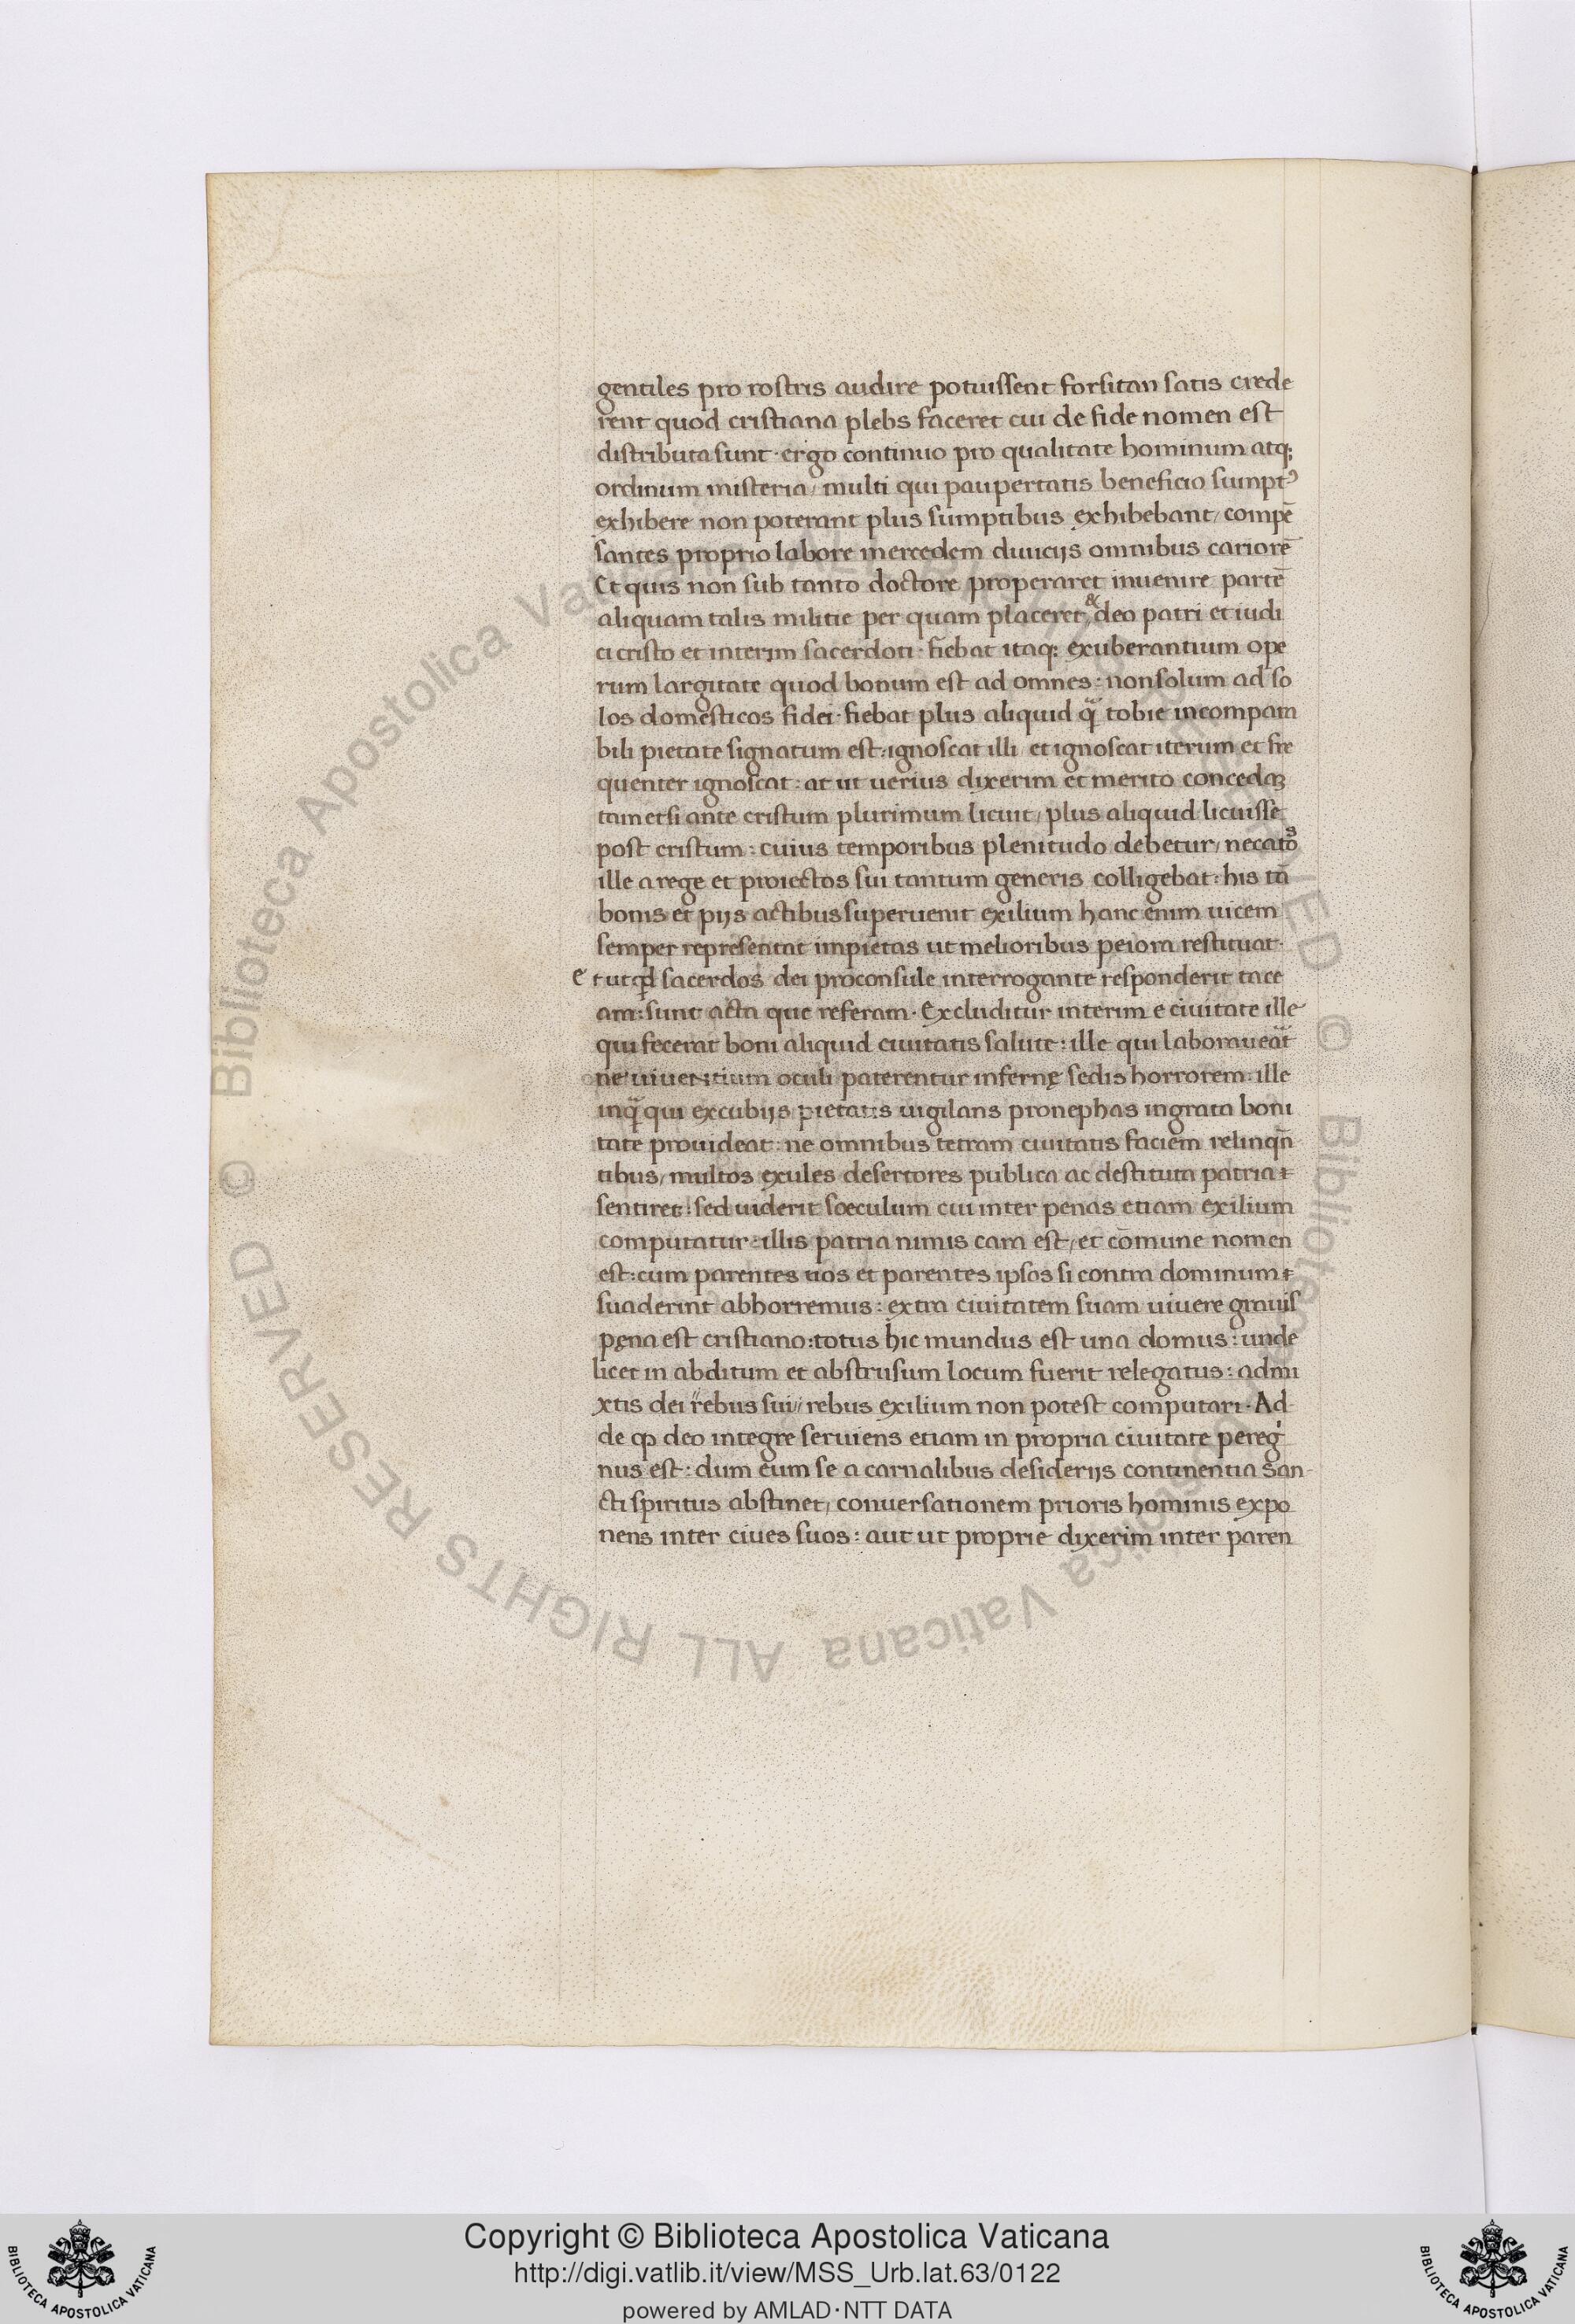 gentiles pro rostris audire potuissent forsitan satis crede
rent quod cristiana plebs faceret cui de fide nomen est
distributa sunt · ergo continuo pro qualitate hominum atq;
ordinum misteria / multi qui paupertatis beneficio sumptꝰ
exhibere non poterant plus sumptibus exhibebant / compē
santes proprio labore mercedem diuicijs omnibus cariorē
Et quis non sub tanto doctore properaret inuenire partē
aliquam talis militie per quam placeret & deo patri et iudi
ci cristo et interim sacerdoti · fiebat itaq; exuberantium ope
rum largitate quod bonum est ad omnes : non solum ad so
los domesticos fidei · fiebat plus aliquid q̃ tobie incompara
bili pietate signatum est : ignoscat illi / et ignoscat iterum et fre
quenter ignoscat : at ut uerius dixerim et merito concedaꝫ
tametsi ante cristum plurimum licuit / plus aliquid licuisse
post cristum : cuius temporibus plenitudo debetur / necatos
ille a rege et proiectos sui tantum generis colligebat : his tā
bonis et pijs actibus superuenit exilium hanc enim uicem
semper representat impietas ut melioribus peiora restituat ·
et ut qd sacerdos dei proconsule interrogante responderit tace
am : sunt acta que referam · Excluditur interim e ciuitate ille
qui fecerat boni aliquid ciuitatis salute : ille qui laboraueat
ne uiuentium oculi paterentur infernę sedis horrorem : ille
inq̃ qui excubijs pietatis uigilans pro nephas ingrata boni
tate prouideat : ne omnibus tetram ciuitatis faciem relinqn̄
tibus / multos exules desertores publica ac destituta patria
sentiret : sed uiderit soeculum cui inter penas etiam exilium
computatur : illis patria nimis cara est / et cōmune nomen
est : cum parentes nos et parentes ipsos si contra dominum
suaderint abhorremus : extra ciuitatem suam uiuere grauis
pęna est cristiano : totus hic mundus est una domus : unde
licet in abditum et abstrusum locum fuerit relegatus : admi
xtis dei rebus sui rebus exilium non potest computari · Ad
de ꝙ deo integre seruiens etiam in propria ciuitate pereg
nus est : dum eum se a carnalibus desiderijs continentia san
cti spiritus abstinet / conuersationem prioris hominis expo
nens inter ciues suos : aut ut proprie dixerim inter paren
© Biblioteca Apostolica Vaticana ALL RIGHTS RESERVED © Biblioteca Apostolica Vaticana ALL RIGHTS RESERVED
Copyright © Biblioteca Apostolica Vaticana
http://digi.vatlib.it/view/MSS_Urb.lat.63/0122
powered by AMLAD·NTT DATA
BIBLIOTECA APOSTOLICA VATICANA
BIBLIOTECA APOSTOLICA VATICANA